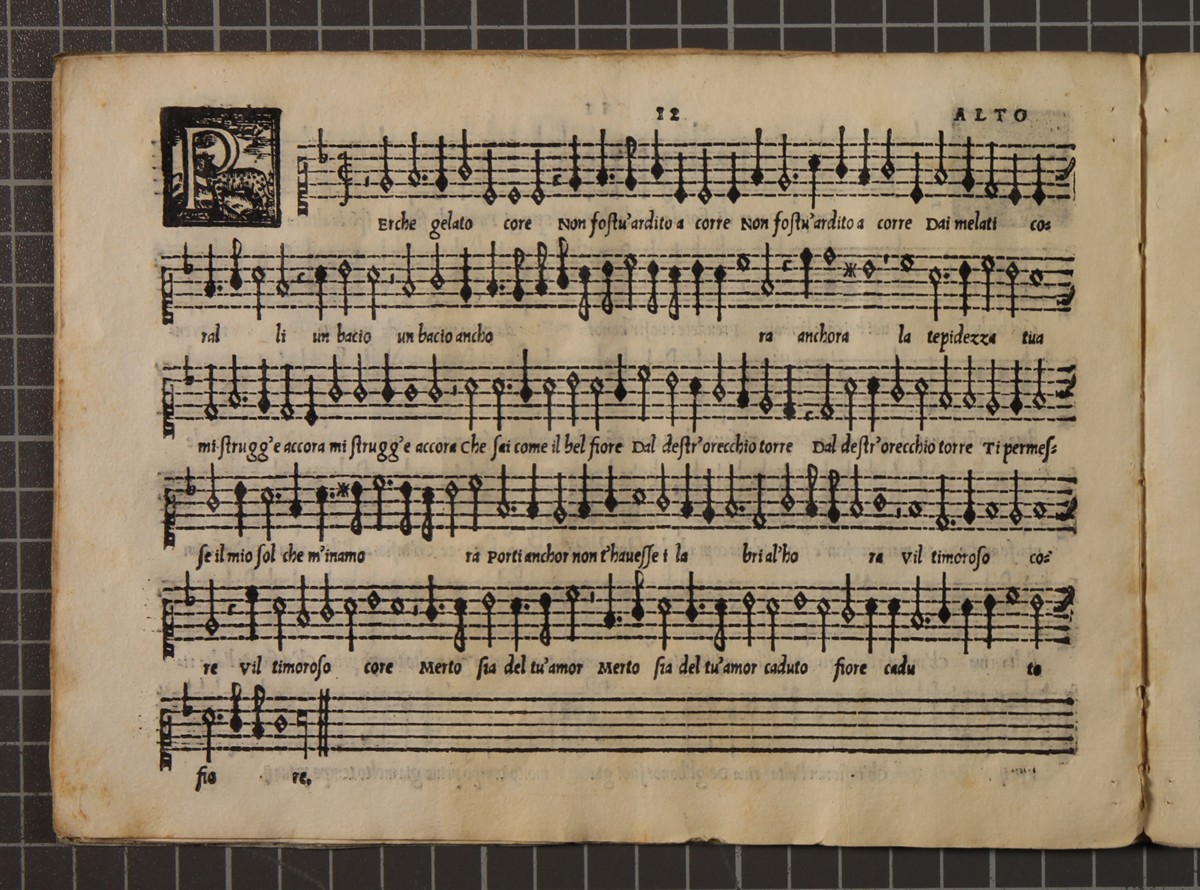 12 ALTO
PErche gelato core Non foſtu'ardito a corre Non foſtu'ardito a corre Dai melati co⸗
ral li un bacio un bacio ancho ra anchora la tepidezza tua
mi ſtrugg'e accora mi ſtrugg'e accora Che ſai come il bel fiore Dal deſtr'orecchio torre Dal deſtr'orecchio torre Ti permeſ⸗
ſe il mio ſol che m'inamo ra Porti anchor non t'haueſſe i la bri al'ho ra Vil timoroſo co⸗
re Vil timoroſo core Merto ſia del tu'amor Merto ſia del tu'amor caduto fiore cadu to
fio re.